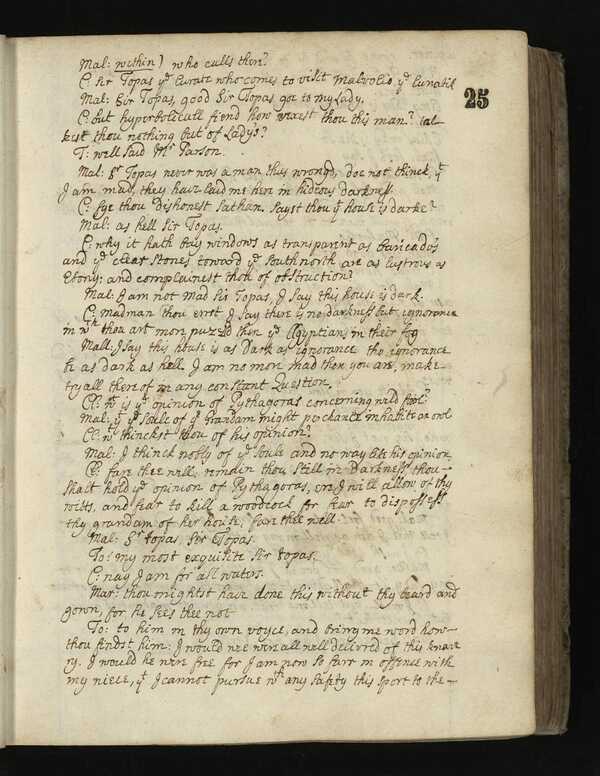 25
Mal: within) who calls ther?
C: Sr Topas ye Curate who comes to visit Malvolio ye Lunatik
Mal: Sir Topas, good Sir Topas goe to my Lady.
C: Out hyperbolicall fiend how vexest thou this man? tal
kest thou nothing but of Ladys?
T: well said Mr Parson.
Mal: Sr Topas never was a man thus wrongd, doe not thinck yt
I am mad, they have laid me here in hideous darkness.
C: fye thou dishonest Sathan. Sayst thou ye house is darke?
Mal: as hell Sir Topas.
C: why it hath bay windows as transparent as baricados
and ye clear stones toward ye South north are as lustrous as
Ebony: and complainest thou of obstruction?
Mal: I am not mad Sir Topas, I say this house is dark.
C: madman thou errst I say there is no darkness but ignorance
in wch thou art more puzzld then ye Ægyptians in their fog
Mall: I say this house is as Dark as ignorance tho ignorance
be as dark as hell. I am no more mad then you are, make
tryall thereof in any constant Question.
Cl: wt is ye opinion of Pythagoras concerning wild fool?
Mal: yt ye Soule of or Grandam might perchance inhabite a
Cl: wt thinckst thou of his opinion?
Mal: I thinck nobly of ye Soule and no way his opinion
Cl: fare thee well, remain thou still in Darkness thou—
shalt hold ye opinion of Pythagoras, ere I will allow of thy
witts, and fear to kill a woodcock for fear to dispossess
thy grandam of her house, fare thee well
Mal: Sr topas Sir Topas.
To: my most exquisite Sir topas.
C: nay I am for all waters.
Mar: thou mightst have done this without thy beard and
gown, for he sees thee not
To: to him in thy own voyce, and bring me word how—
thou findst him: I would wee were all well delivered of this knave
ry. I would he were free for I am now so farr in offence with
my niece, yt I cannot pursue wt any safety this sport to the—